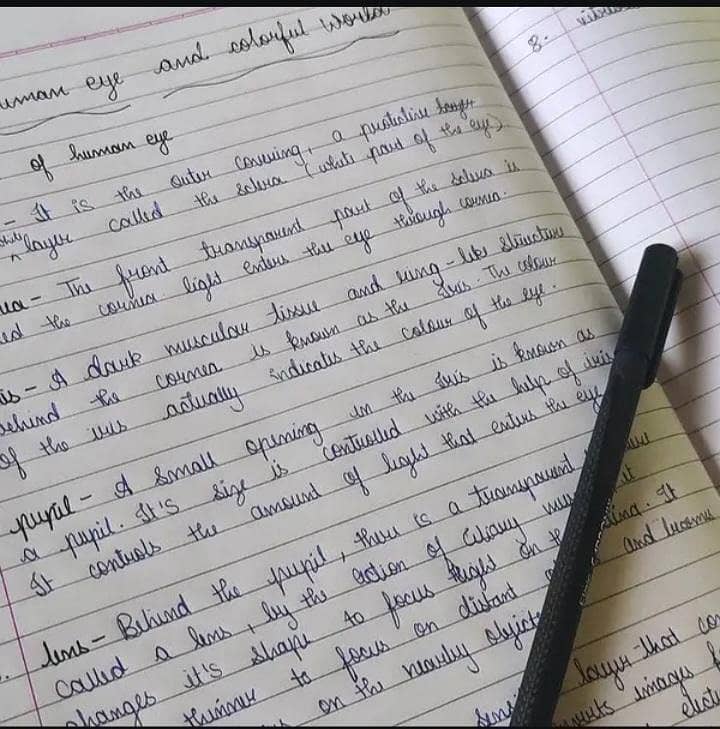 uman eye and colorful World
8.
of human eye
- It is the outer covering, a protective tough
white layer called the sclera (white part of the eye)
- The front transparent part of the sclera is
the cornea light enters the eye through cornea.
is - A dark muscular tissue and ring-like structure
behind the cornea is known as the iris. The colour
of the iris actually indicates the colour of the eye.
pupil - A small opening in the iris is known as
a pupil. It's size is controlled with the help of iris
It controls the amount of light that enters the eye
lens - Behind the pupil, there is a transparent
called a lens, by the action of ciliary
changes it's shape to focus light on It
thinner to focus on distant and becomes
on the nearby objects
layer that
images